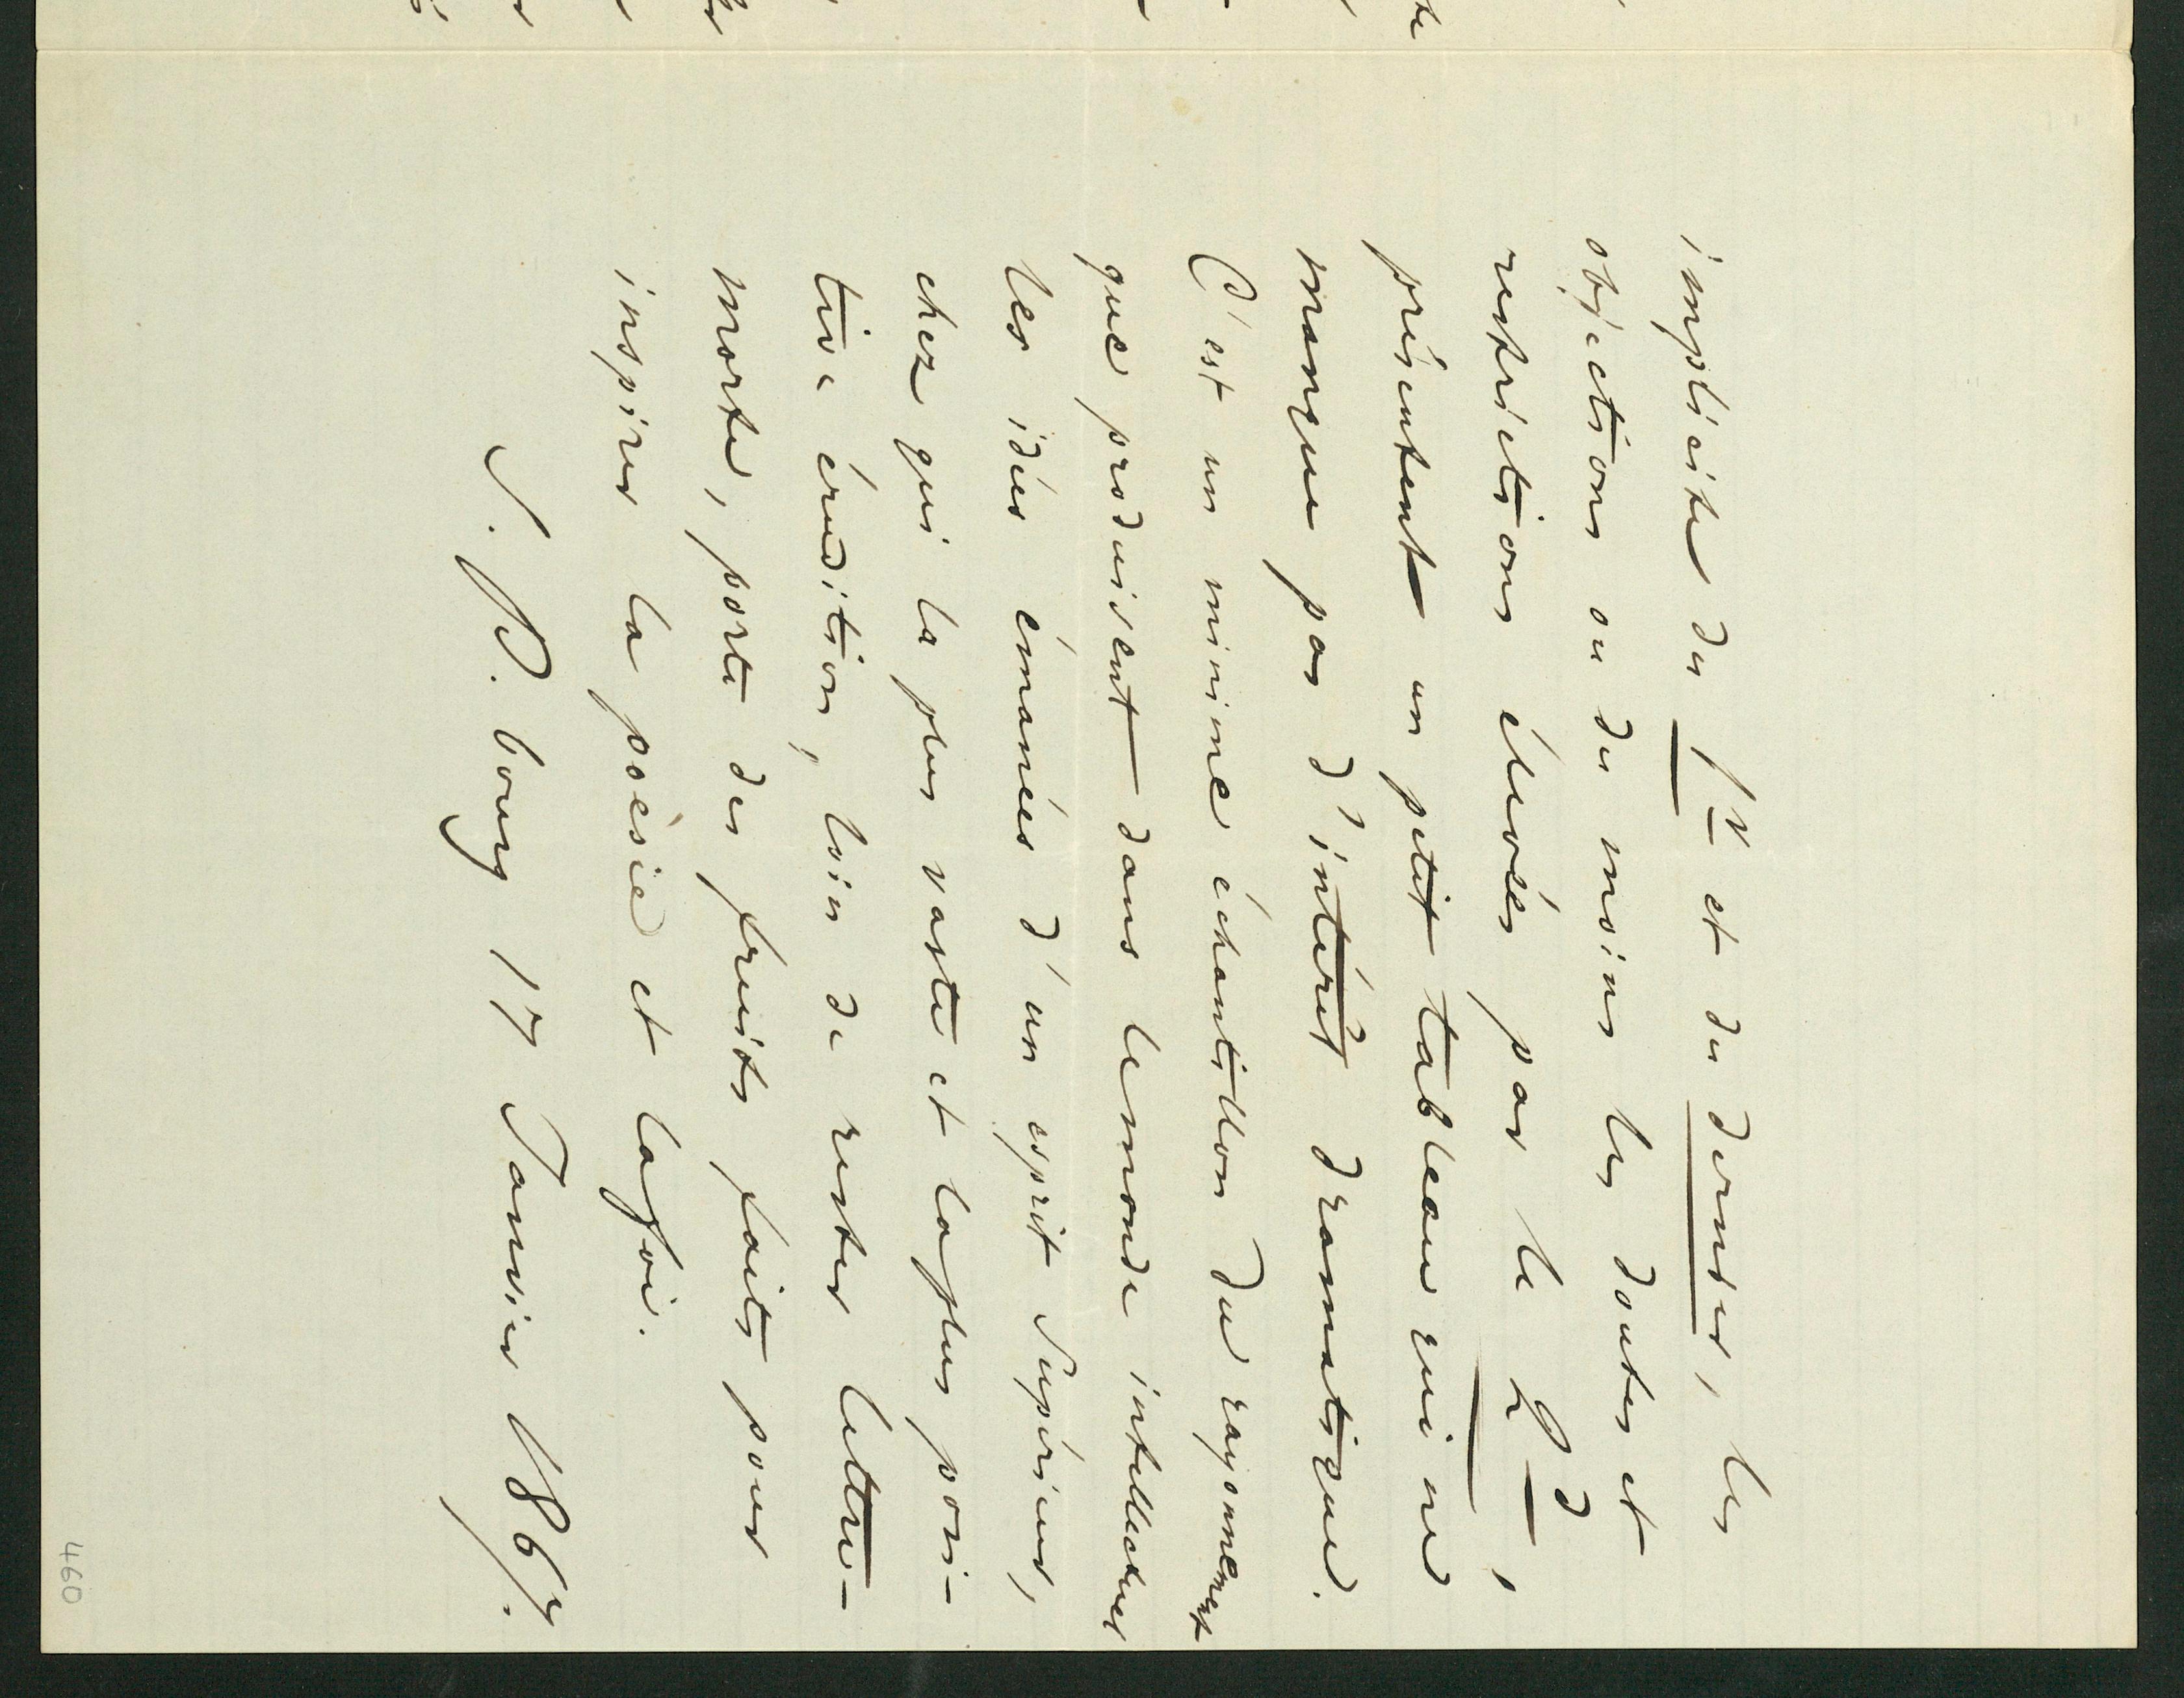 implicite du 1er et du dernier, les
objections ou du moins les doutes et
restrictions élevées par le 2d,
présentent un petit tableau qui ne
manque pas d'intérêt dramatique.
C'est un minime échantillon du rayonnement
que produisent dans le monde intellectuel
les idées émanées d'un esprit Supérieur,
chez qui la plus vaste et la plus posi-
tive érudition, loin de rester lettre-
morte, porte des fruits faits pour
inspirer la poèsie et la foi.
S. P. bourg 17 Janvier 1867.
0694